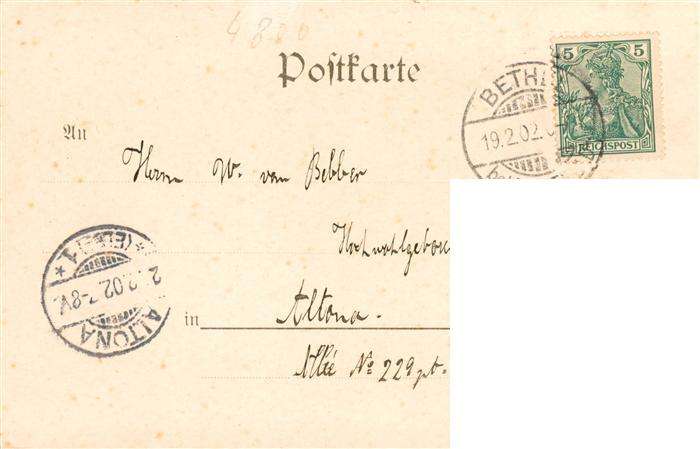 Postkarte
5 5
REICHSPOST
BETH
19.2.02.
An
Herrn W. van Bebber
Hochwohlgebor
in Altona.
Allée No 229 pt.
ALTONA
2.02. 7-8V.
* (ELBE) 1 *